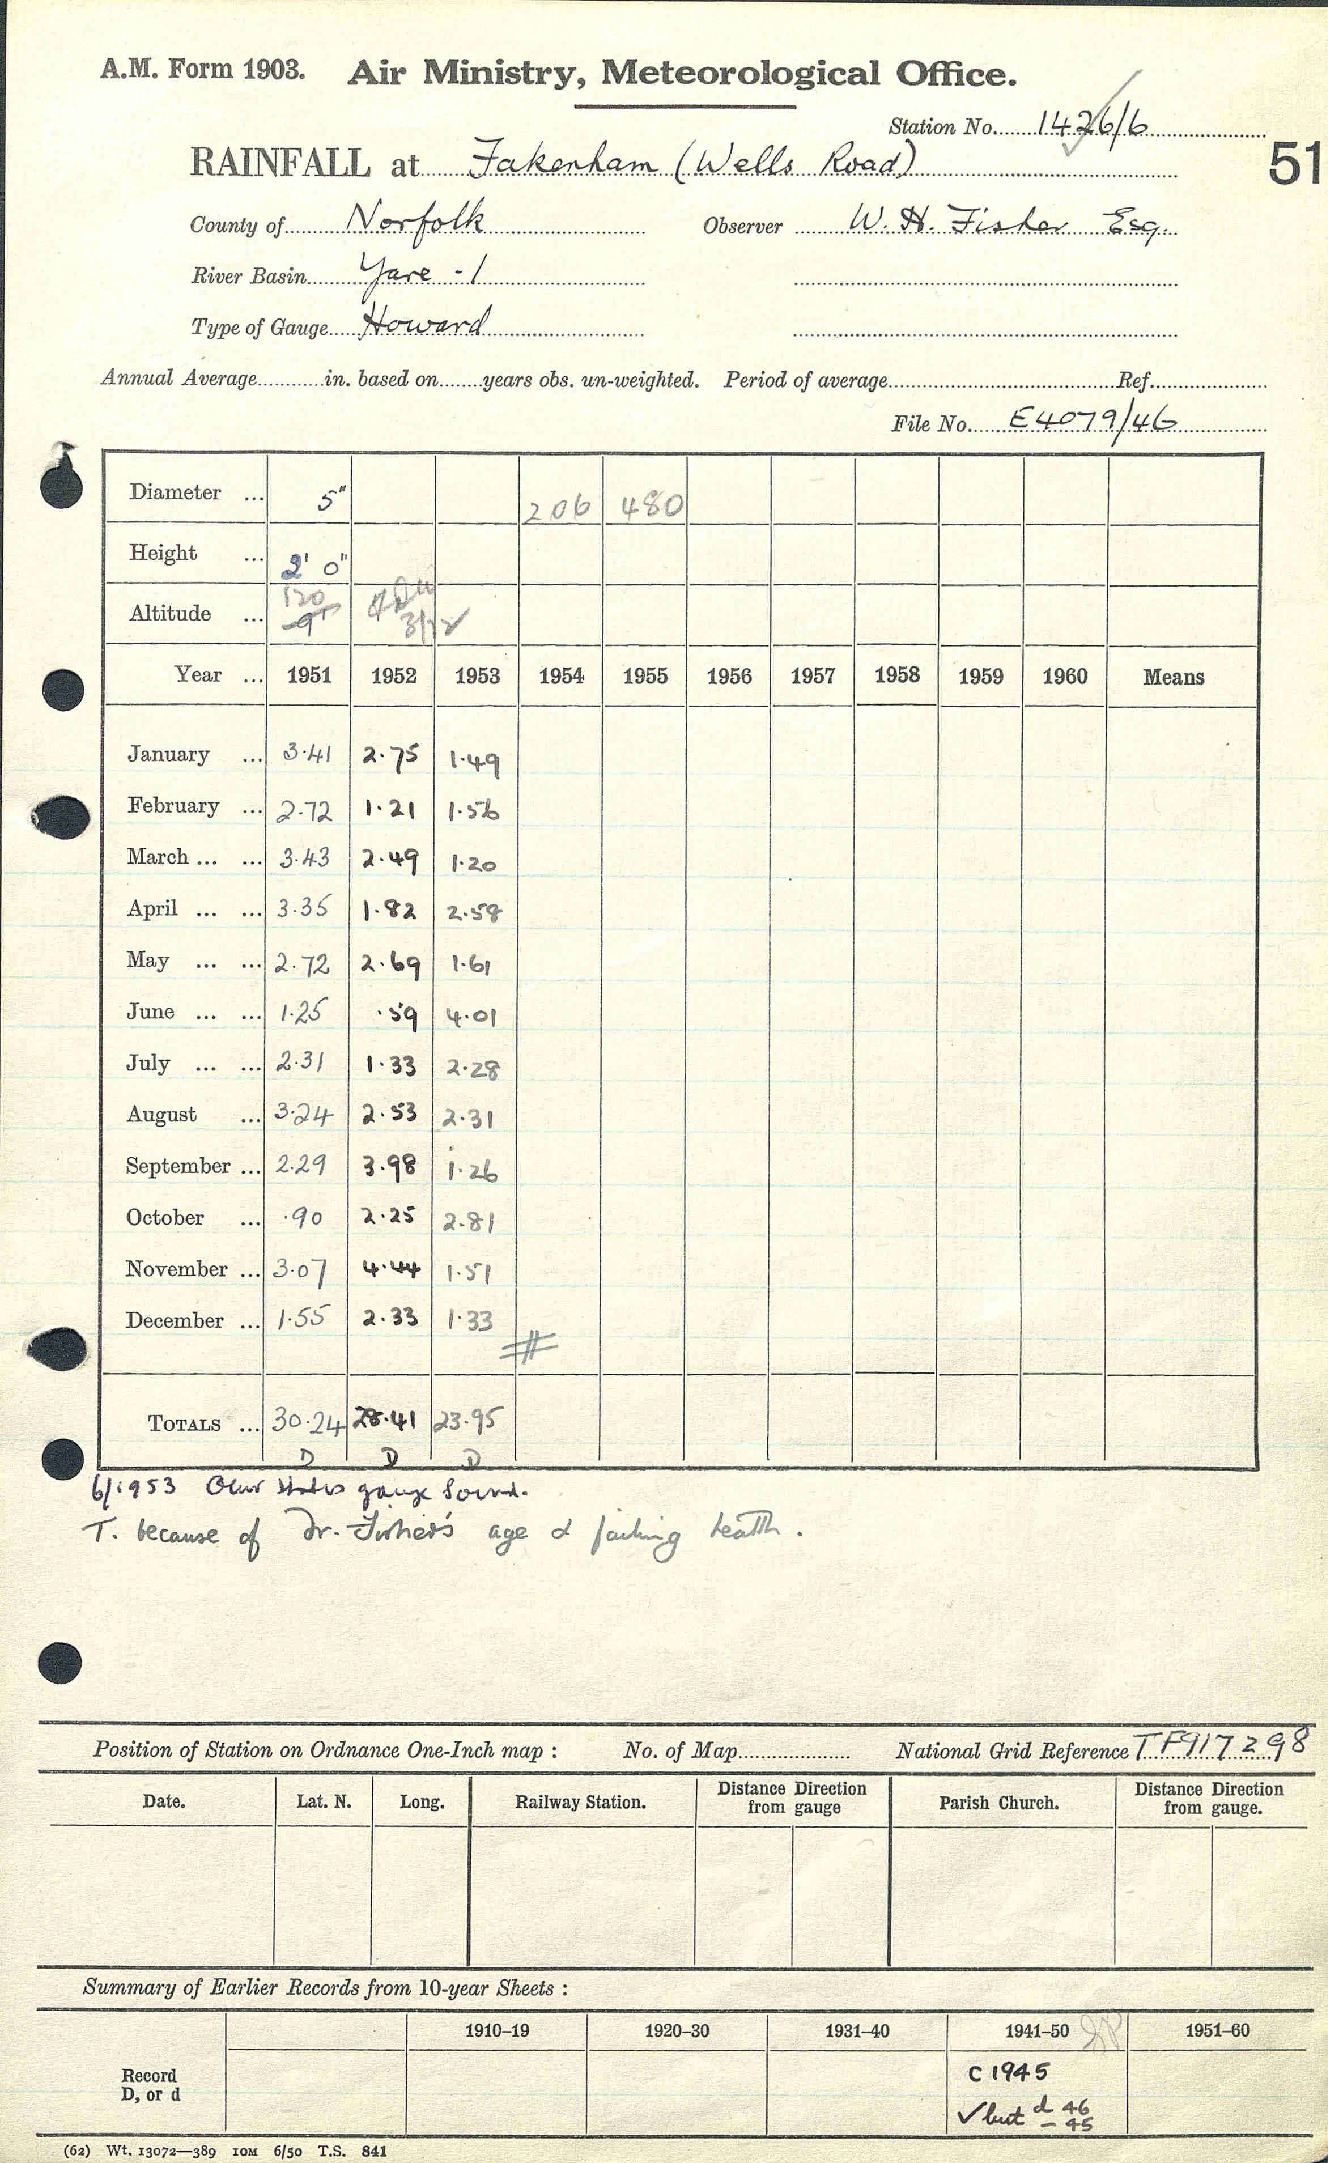 A.M. Form 1903. Air Ministry, Meteorological Office.
Station No. 1426/6
RAINFALL at Fakenham (Wells Road)
51
County of Norfolk Observer W. H. Fisher Esq.
River Basin Yare - 1
Type of Gauge Howard
Annual Average in. based on years obs. un-weighted. Period of average Ref.
File No. E4079/46
Diameter ... 5" 206 480
Height ... 2' 0"
Altitude ... 120
Year ... 1951 1952 1953 1954 1955 1956 1957 1958 1959 1960 Means
January ... 3.41 2.75 1.49
February ... 2.72 1.21 1.56
March ... ... 3.43 2.49 1.20
April ... ... 3.35 1.82 2.58
May ... ... 2.72 2.69 1.61
June ... ... 1.25 .59 4.01
July ... ... 2.31 1.33 2.28
August ... 3.24 2.53 2.31
September ... 2.29 3.98 1.26
October ... .90 2.25 2.81
November ... 3.07 4.44 1.51
December ... 1.55 2.33 1.33
TOTALS ... 30.24 28.41 23.95
D D D
6/1953 gauge sound.
T. because of Dr. Fisher's age & failing health.
Position of Station on Ordnance One-Inch map : No. of Map National Grid Reference TF917298
Date. Lat. N. Long. Railway Station. Distance from gauge Direction Parish Church. Distance from gauge. Direction
Summary of Earlier Records from 10-year Sheets :
1910–19 1920–30 1931–40 1941–50 1951–60
Record D, or d
C 1945
✓ but d 46
– 45
(62) Wt. 13072—389 IOM 6/50 T.S. 841